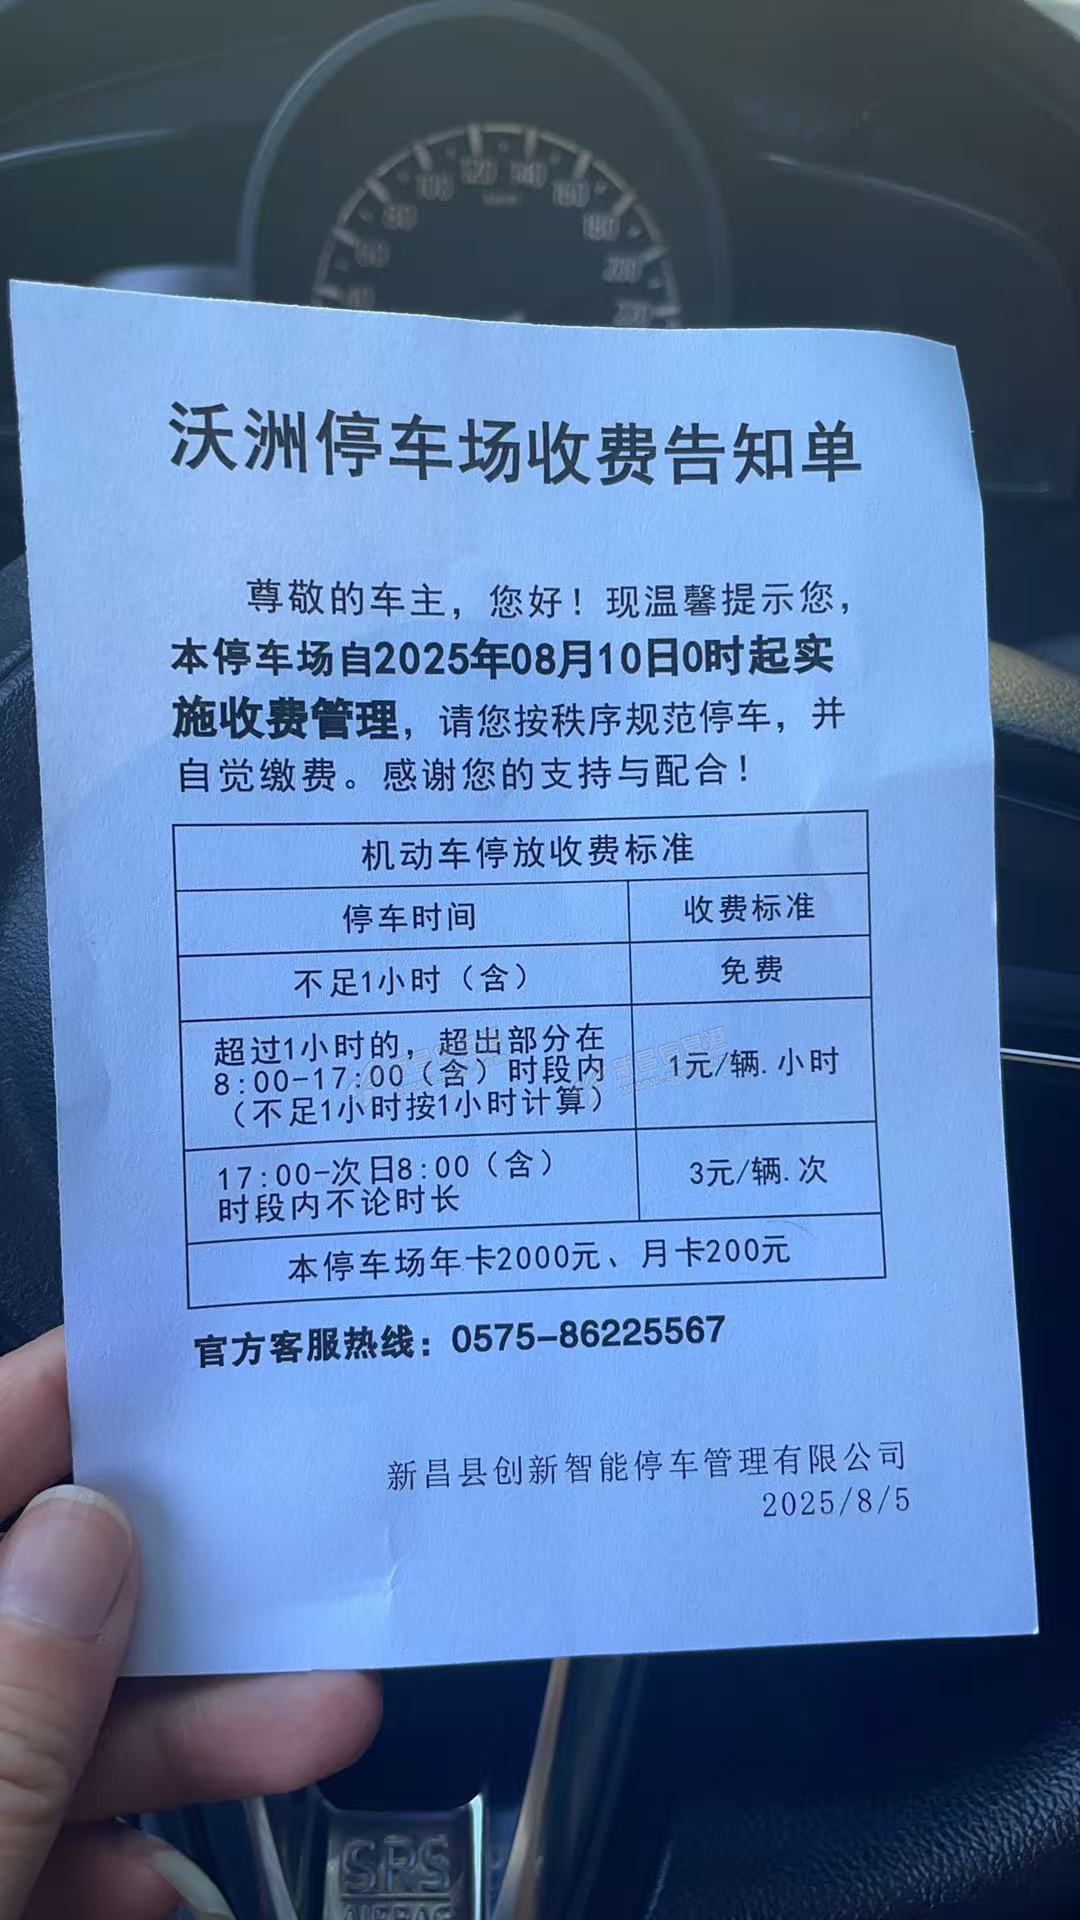 100 120 140 160
80 180
200
沃洲停车场收费告知单
尊敬的车主，您好！现温馨提示您，
本停车场自2025年08月10日0时起实
施收费管理，请您按秩序规范停车，并
自觉缴费。感谢您的支持与配合！
机动车停放收费标准
停车时间 收费标准
不足1小时（含） 免费
超过1小时的，超出部分在
8:00-17:00（含）时段内
（不足1小时按1小时计算）
1元/辆.小时
17:00-次日8:00（含）
时段内不论时长
3元/辆.次
本停车场年卡2000元、月卡200元
官方客服热线：0575-86225567
新昌县创新智能停车管理有限公司
2025/8/5
SRS
AIRBAG